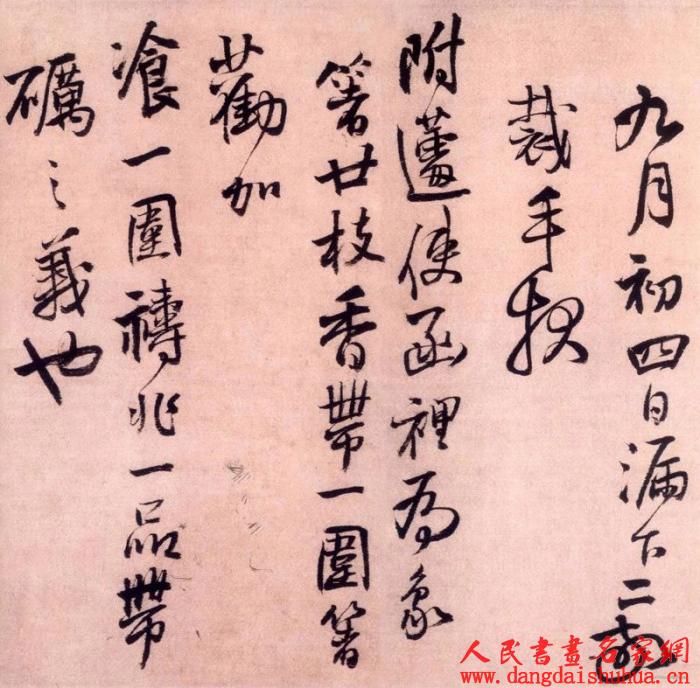 九月初四日漏下二鼓
裁手狀
附蘧使函裡為象
箸廿枝香帶一圍箸
廿勸加
飡一圍禱兆一品帶
礪之義也
人民書畫名家網
www.dangdaishuhua.cn